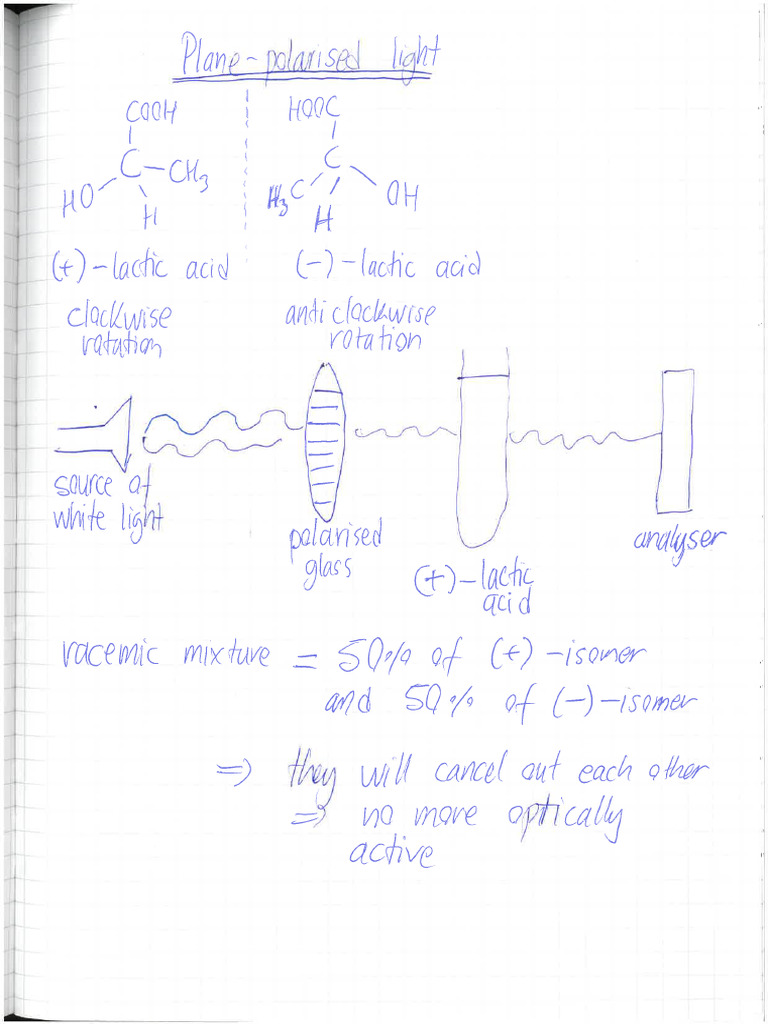 Plane-polarised light
COOH
HOOC
C-CH3
C
HO
H
H3C
H
OH
(+)-lactic acid
(-)-lactic acid
clockwise
rotation
anticlockwise
rotation
source of
white light
polarised
glass
(+)-lactic
acid
analyser
racemic mixture = 50% of (+)-isomer
and 50% of (-)-isomer
⇒ they will cancel out each other
⇒ no more optically
active